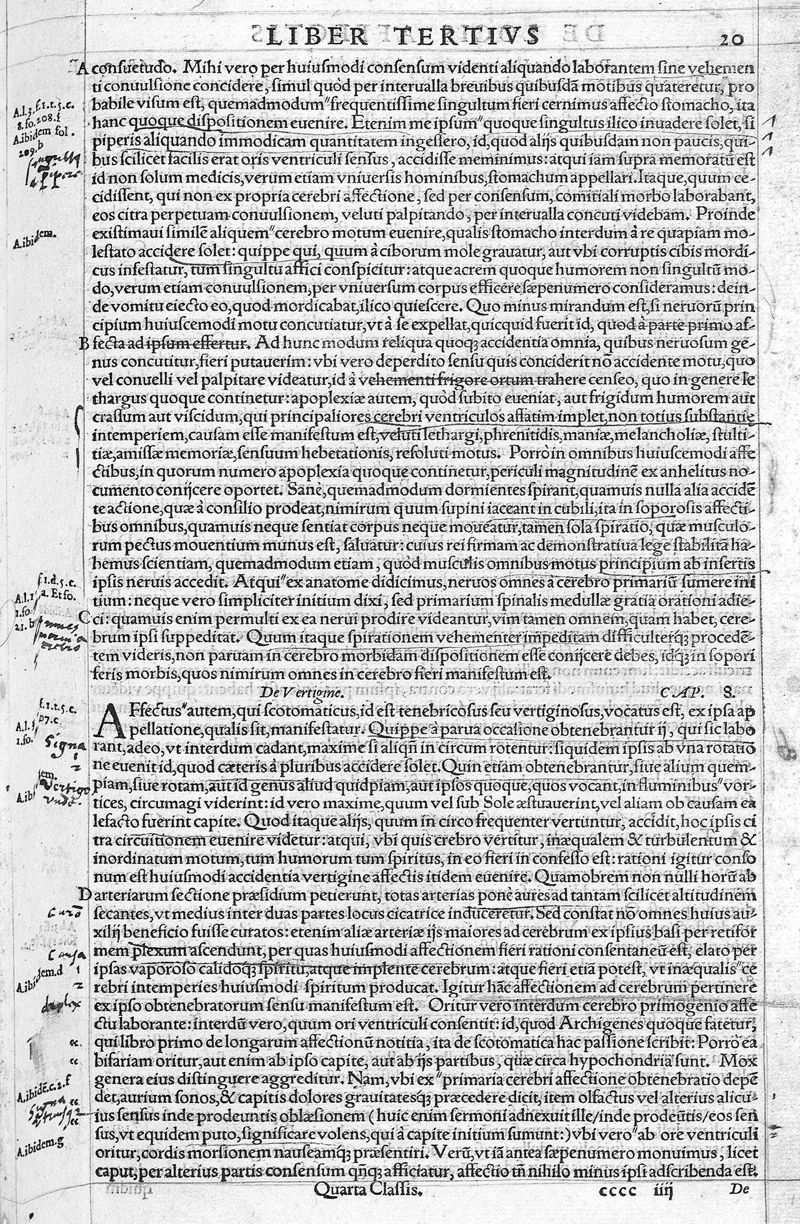 LIBER TERTIVS 20
A consuetudo. Mihi vero per huiusmodi consensum videnti aliquando laborantem sine vehemen
ti conuulsione concidere, simul quòd per interualla breuibus quibusdã motibus quateretur, pro
babile visum est, quemadmodum frequentissime singultum fieri cernimus affecto stomacho, ita
hanc quoque dispositionem euenire. Etenim me ipsum quoque singultus ilico inuadere solet, si
piperis aliquando immodicam quantitatem ingessero, id, quod alijs quibusdam non paucis, qui-
bus scilicet facilis erat oris ventriculi sensus, accidisse meminimus: atqui iam supra memoratũ est
id non solum medicis, verum etiam vniuersis hominibus, stomachum appellari. Itaque, quum ce-
cidissent, qui non ex propria cerebri affectione, sed per consensum, comitiali morbo laborabant,
eos citra perpetuam conuulsionem, veluti palpitando, per interualla concuti videbam. Proinde
existimaui similẽ aliquem cerebro motum euenire, qualis stomacho interdum à re quapiam mo-
lestato accidere solet: quippe qui, quum à ciborum mole grauatur, aut vbi corruptis cibis mordi-
cus infestatur, tum singultu affici conspicitur: atque acrem quoque humorem non singultũ mo-
do, verum etiam conuulsionem, per vniuersum corpus efficere sæpenumero consideramus: dein-
de vomitu eiecto eo, quod mordicabat, ilico quiescere. Quo minus mirandum est, si neruorũ prin
cipium huiuscemodi motu concutiatur, vt à se expellat, quicquid fuerit id, quod à parte primo af-
B fecta ad ipsum effertur. Ad hunc modum reliqua quoq; accidentia omnia, quibus neruosum ge-
nus concutitur, fieri putauerim: vbi vero deperdito sensu quis conciderit nõ accidente motu, quo
vel conuelli vel palpitare videatur, id à vehementi frigore ortum trahere censeo, quo in genere le
thargus quoque continetur: apoplexiæ autem, quòd subito eueniat, aut frigidum humorem aut
crassum aut viscidum, qui principaliores cerebri ventriculos affatim implet, non totius substantiæ
intemperiem, causam esse manifestum est, veluti lethargi, phrenitidis, maniæ, melancholiæ, stulti-
tiæ, amissæ memoriæ, sensuum hebetationis, resoluti motus. Porrò in omnibus huiuscemodi affe
ctibus, in quorum numero apoplexia quoque continetur, periculi magnitudinẽ ex anhelitus no-
cumento conijcere oportet. Sanè, quemadmodum dormientes spirant, quamuis nulla alia accidẽ
te actione, quæ à consilio prodeat, nimirum quum supini iaceant in cubili, ita in soporosis affecti-
bus omnibus, quamuis neque sentiat corpus neque moueatur, tamen sola spiratio, quæ musculo-
rum pectus mouentium munus est, saluatur: cuius rei firmam ac demonstratiua lege stabilitã ha-
bemus scientiam, quemadmodum etiam, quòd musculis omnibus motus principium ab insertis
ipsis neruis accedit. Atqui ex anatome didicimus, neruos omnes à cerebro primariũ sumere ini
tium: neque vero simpliciter initium dixi, sed primarium spinalis medullæ gratia orationi adie-
C ci: quamuis enim permulti ex ea nerui prodire videantur, vim tamen omnem, quam habet, cere-
brum ipsi suppeditat. Quum itaque spirationem vehementer impeditam difficulterq; procedẽ-
tem videris, non paruam in cerebro morbidam dispositionem esse conijcere debes, idq; in sopori
feris morbis, quos nimirum omnes in cerebro fieri manifestum est.
De Vertigine. CAP. 8.
AFfectus autem, qui scotomaticus, id est tenebricosus seu vertiginosus, vocatus est, ex ipsa ap
pellatione, qualis sit, manifestatur. Quippe à parua occasione obtenebrantur ij, qui sic labo
rant, adeo, vt interdum cadant, maxime si aliqñ in circum rotentur: siquidem ipsis ab vna rotatio
ne euenit id, quod cæteris à pluribus accidere solet. Quin etiam obtenebrantur, siue alium quem-
piam, siue rotam, aut id genus aliud quidpiam, aut ipsos quoque, quos vocant, in fluminibus vor-
tices, circumagi viderint: id vero maxime, quum vel sub Sole æstuauerint, vel aliam ob causam ca
lefacto fuerint capite. Quod itaque alijs, quum in circo frequenter vertuntur, accidit, hoc ipsis ci
tra circuitionem euenire videtur: atqui, vbi quis crebro vertitur, inæqualem & turbulentum &
inordinatum motum, tum humorum tum spiritus, in eo fieri in confesso est: rationi igitur conso
num est huiusmodi accidentia vertigine affectis itidem euenire. Quamobrem non nulli horũ ab
D arteriarum sectione præsidium petierunt, totas arterias pone aures ad tantam scilicet altitudinem
secantes, vt medius inter duas partes locus cicatrice induceretur. Sed constat nõ omnes huius au-
xilij beneficio fuisse curatos: etenim aliæ arteriæ ijs maiores ad cerebrum ex ipsius basi per retifor
mem plexum ascendunt, per quas huiusmodi affectionem fieri rationi consentaneũ est, elato per
ipsas vaporoso calidoq; spiritu, atque implente cerebrum: atque fieri etiã potest, vt inæqualis ce
rebri intemperies huiusmodi spiritum producat. Igitur hãc affectionem ad cerebrum pertinere
ex ipso obtenebratorum sensu manifestum est. Oritur vero interdum cerebro primogenio affe
ctu laborante: interdũ vero, quum ori ventriculi consentit: id, quod Archigenes quoque fatetur,
qui libro primo de longarum affectionũ notitia, ita de scotomatica hac passione scribit: Porrò ea
bifariam oritur, aut enim ab ipso capite, aut ab ijs partibus, quæ circa hypochondria sunt. Mox
genera eius distinguere aggreditur. Nam, vbi ex primaria cerebri affectione obtenebratio depẽ
det, aurium sonos, & capitis dolores grauitatesq; præcedere dicit, item olfactus vel alterius alicu-
ius sensus inde prodeuntis oblæsionem (huic enim sermoni adnexuit ille / inde prodeũtis / eos sen
sus, vt equidem puto, significare volens, qui à capite initium sumunt:) vbi vero ab ore ventriculi
oritur, cordis morsionem nauseamq; præsentiri. Verũ, vt iã antea sæpenumero monuimus, licet
caput, per alterius partis consensum qñq; afficiatur, affectio tñ nihilo minus ipsi adscribenda est.
Quarta Classis. cccc iiij De
A.ibidem.
Signa
Vertigo
Causa
duplex
A.ibidẽ.c.2.f
A.ibidem.g